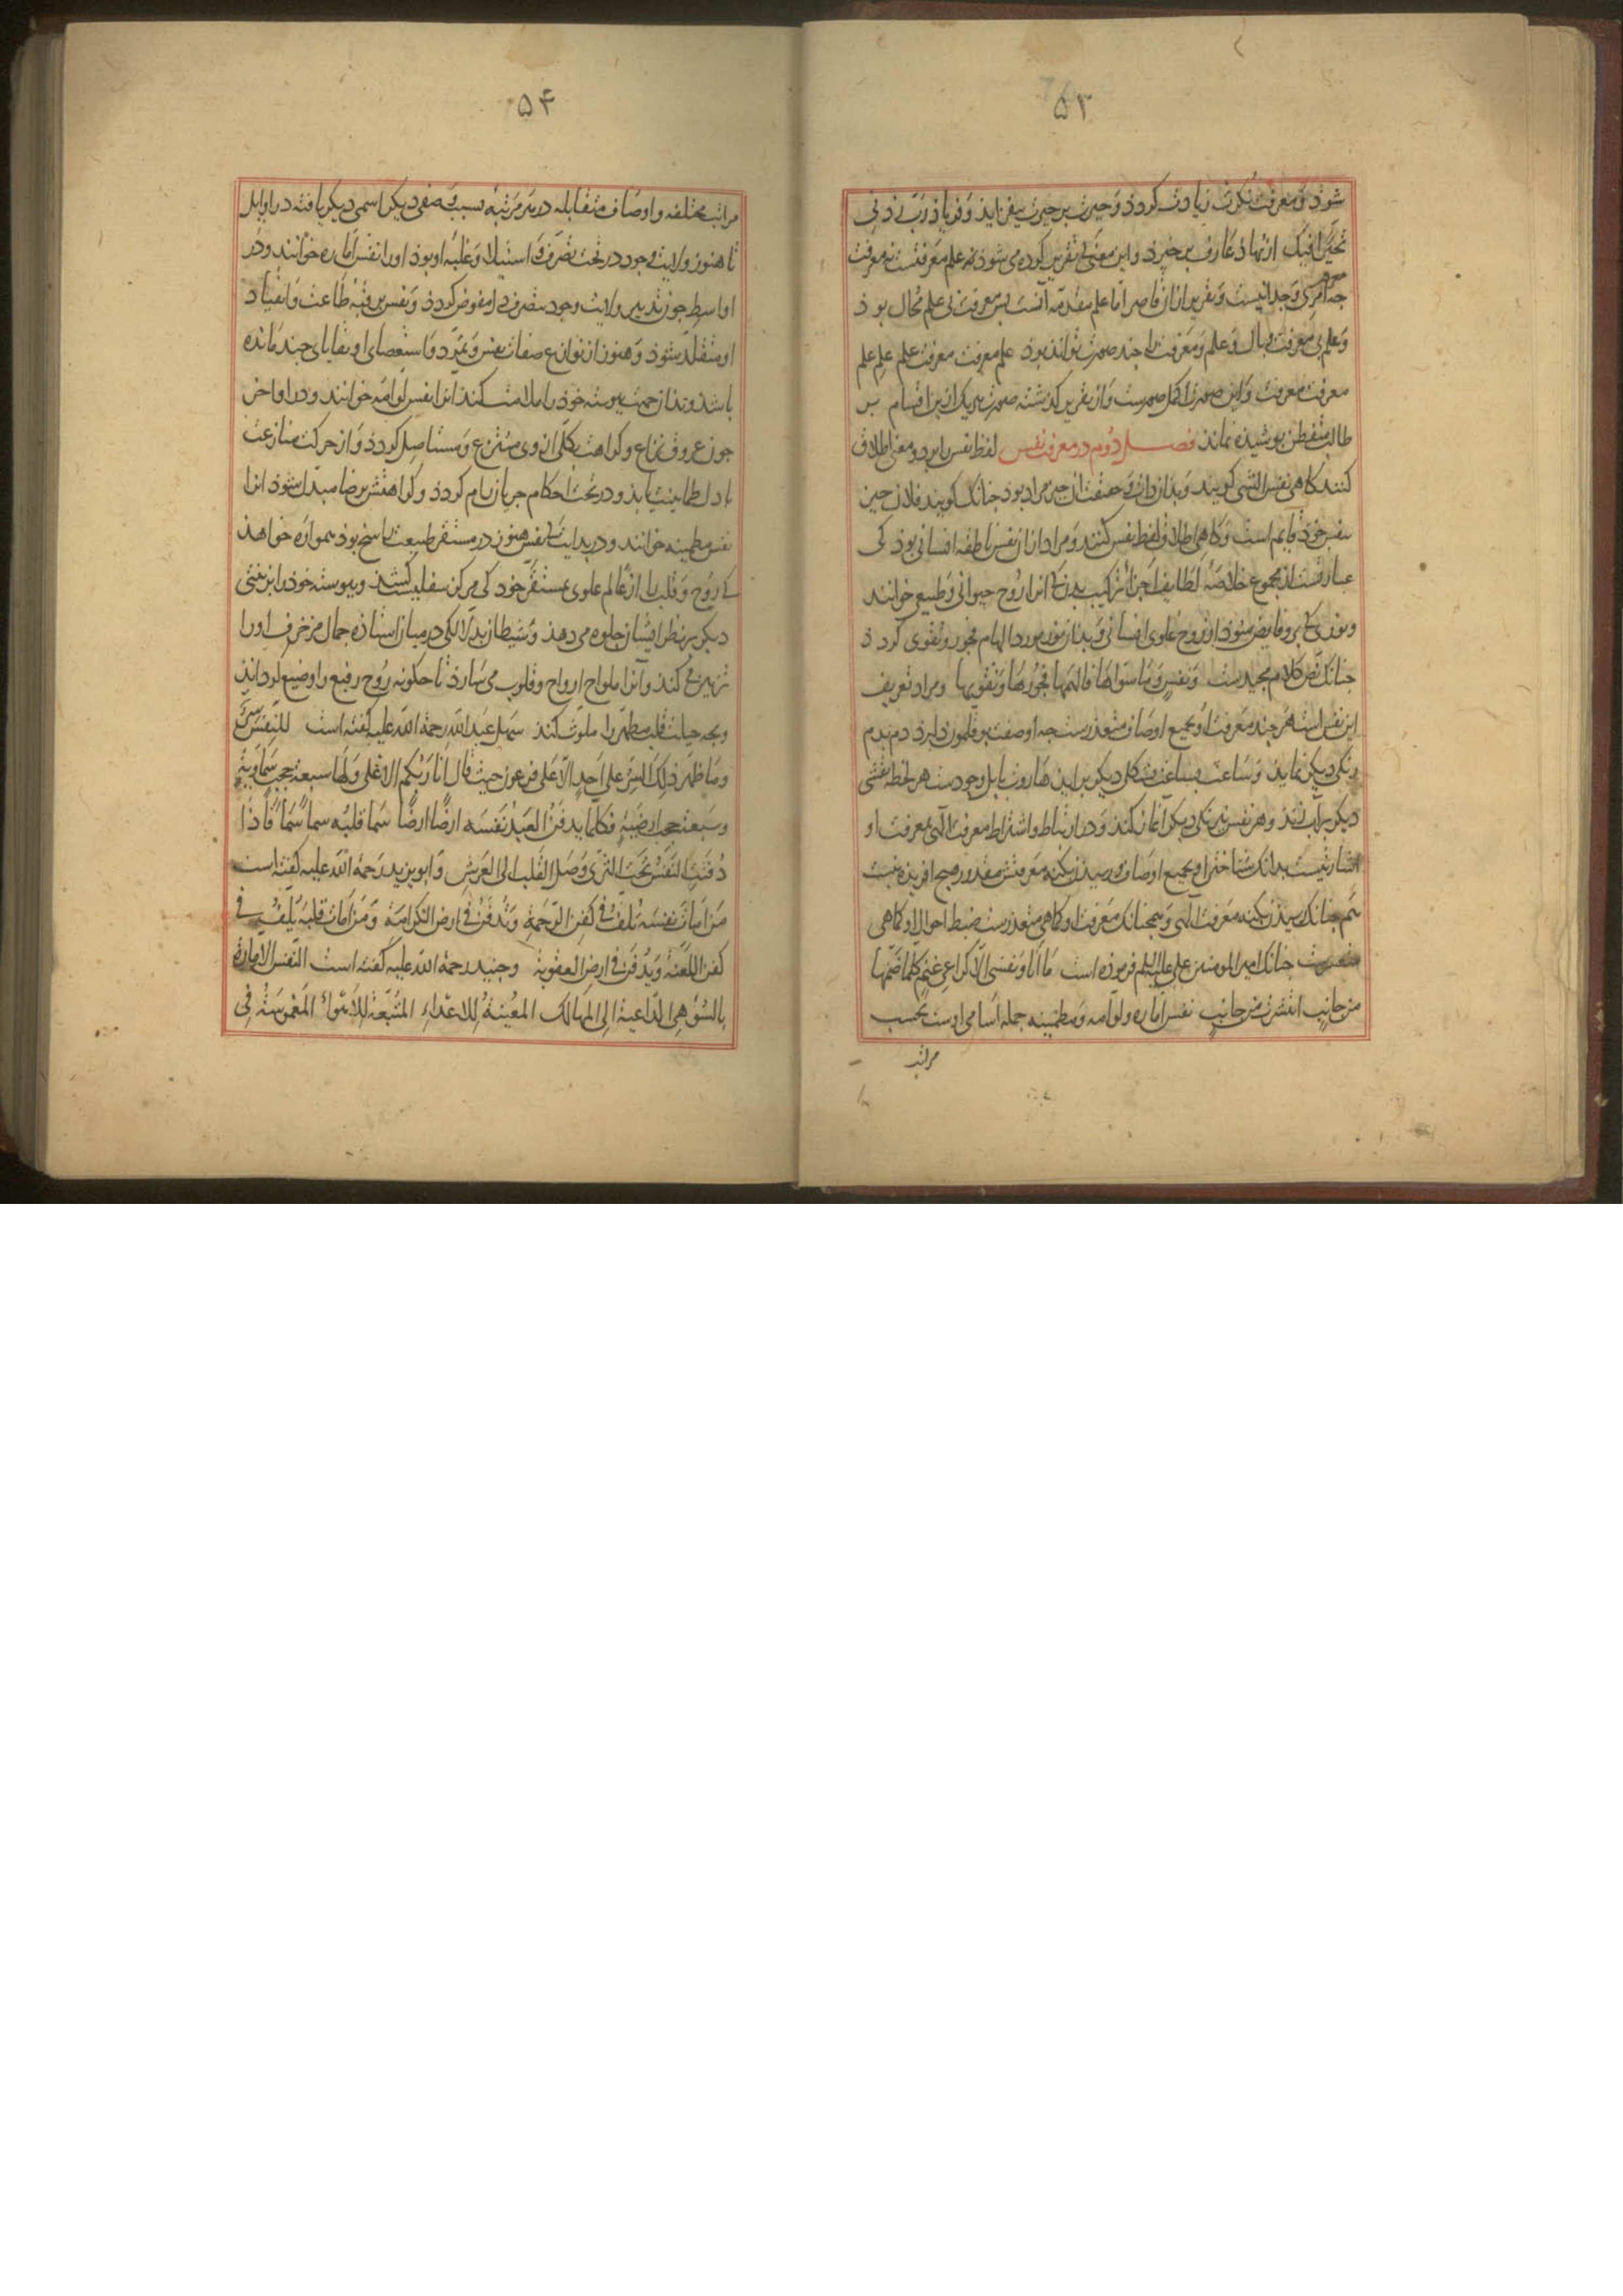 ۵۳
شوذ و معرفت نکرت زیادت کردذ و حیرت بر حیرت بیفزاید و فریاذ رب زدنی
تحیرا فیک از نهاذ عارف بر خیزد و این معنی که تقریر کرده می شوذ نه علم معرفتست نه معرفت
چه معرفت امری وجدانیست و تقریر از ان قاصر اما علم مقدمه آنست پس معرفت بی علم محال بوذ
و علم بی معرفت وبال و علم و معرفت را چند صورت تواند بود علم معرفت معرفت علم علم علم
معرفت معرفت و این صورت اکمل صورست و از تقریر گذشته صورت هر یک ازین اقسام بر
طالب متفطن پوشیده نماند فصـل دوم در معرفت نفس لفظ نفس را بر دو معنی اطلاق
کنند کاهی نفس الشی کویند و بذان ذات و حقیقت ان چیز مراد بود چنانک کویند فلان چیز
بنفس خوذ قایم است و کاهی اطلاق لفظ نفس کنند و مراد از ان نفس ناطقه انسانی بوذ کی
عبارتست از مجموع خلاصه لطایف اجزا ترکیب بدن کی انرا روح حیوانی و طبیعی خوانند
و نوری کی برو فایض شوذ از روح علوی انسانی و بذان نور مورد الهام فجور و تقوی کردذ
چنانک نص کلام مجیدست و نفس و ما سواها فالهمها فجورها و تقویها و مراد تعریف
این نفس است هر چند معرفت او بجمیع اوصاف متعذرست چه او صفت بوقلمون دارذ دم بدم
رنکی دیکر نماید و ساعت بساعت بشکل دیکر براید هاروت بابل وجودست هر لحظه نقشی
دیکر بر آب زند و هر نفس نیرنکی دیکر آغاز کند و در ارتباط و اشتراط معرفت الهی بمعرفت او
اشارتیست بدانک شناختن او بجمیع اوصاف و رسیدن بکنه معرفتش مقدور هیچ افریده نیست
هم چنانک رسیدن بکنه معرفت الهی و همچنانک معرفت او کماهی متعذرست ضبط احوال او کماهی
متعسرست چنانک امیر المومنین علی علیه السلم فرموذه است ما انا و نفسی الا کراعی غنم کلما ضمها
من جانب انتشرت من جانب نفس اماره و لوامه و مطمینه جمله اسامی اوست بحسب
مراتب
۵۴
مراتب مختلفه و اوصاف متقابله در هر مرتبه بسبب وصفی دیکر اسمی دیکر یافته در اوایل
تا هنوز ولایت وجود در تحت تصرف و استیلا و غلبه او بوذ او را نفس اماره خوانند و در
اواسط چون تدبیر ولایت وجود بتصرف دل مفوض کردذ و نفس بربقه طاعت و انقیاد
او متقلد شوذ و هنوز از انواع صفات نفس و تمرد و استعصای او بقایای چند مانده
باشذ و بذان جهت پیوسته خوذ را ملامت کند انرا نفس لوامه خوانند و در اواخر
چون عروق نزاع و کراهت بکلی از وی منتزع و مستاصل کردذ و از حرکت منازعت
با دل طمانینت یابذ و در تحت احکام جریان رام کردذ و کراهتش برضا مبدل شوذ انرا
نفس مطمینه خوانند و در بدایت کی نفس هنوز در مستقر طبیعت راسخ بوذ همواره خواهذ
کی روح و قلب را از عالم علوی بمستقر خوذ کی مرکز سفلیست کشذ و پیوسته خوذ را بزینتی
دیکر بر نظر ایشان جلوه می دهذ و شیطان بدلالکی در میان استاذه جمال مزخرف او را
تزیین می کند و آنرا بارواح و قلوب می سپارذ تا چکونه روح رفیع را وضیع کرداند
و بچه حیلت قلب مطهر را ملوث کند سهل عبد الله رحمة الله علیه کفته است للنفس سر
و ما ظهر ذلک السر علی احد الا علی فرعون حیث قال انا ربکم الاعلی و لها سبعة حجب سماویة
و سبعة حجب ارضیة فکلما یدفن العبد نفسه ارضا ارضا سما قلبه سما سما فاذا
دفنت النفس تحت الثری وصل القلب الی العرش و ابو یزید رحمة الله علیه کفته است
من امات نفسه یلف فی کفن الرحمة و یدفن فی ارض الکرامة و من امات قلبه یلف فی
کفن اللعنة و یدفن فی ارض العقوبة و جنید رحمة الله علیه کفته است النفس الامارة
بالسوء هی الداعیة الی المهالک المعینة للاعداء المتبعة للاهواء المغموسة فی